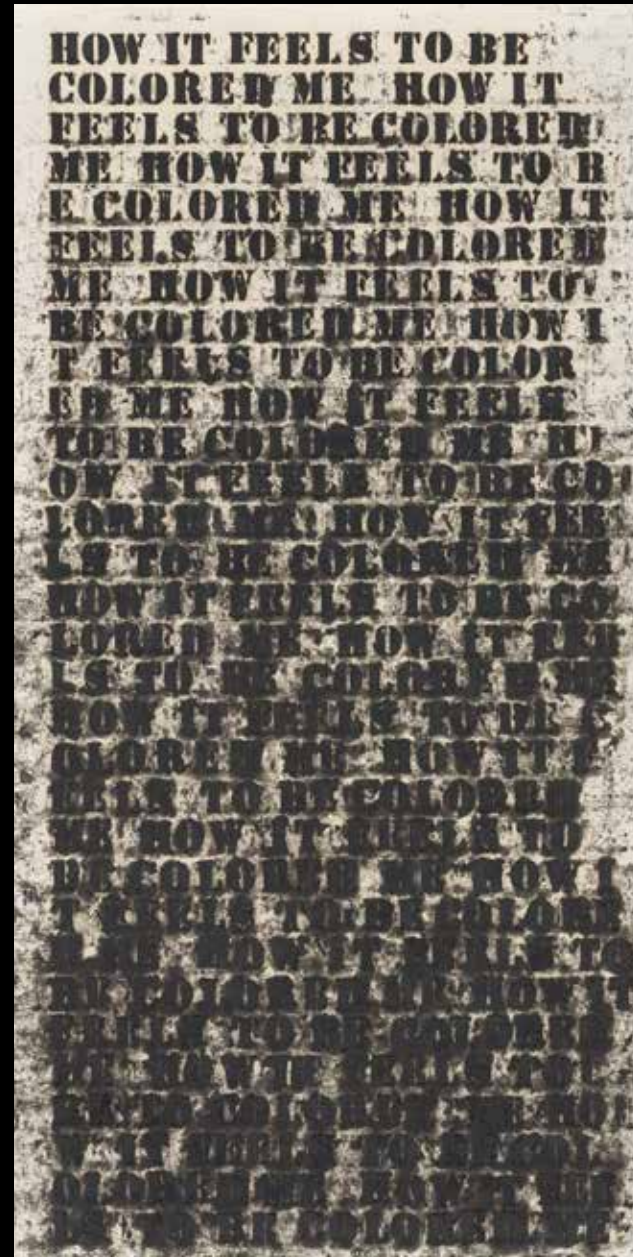 HOW IT FEELS TO BE
COLORED ME HOW IT
FEELS TO BE COLORED
ME HOW IT FEELS TO B
E COLORED ME HOW IT
FEELS TO BE COLORED
ME HOW IT FEELS TO
BE COLORED ME HOW I
T FEELS TO BE COLOR
ED ME HOW IT FEELS
TO BE COLORED ME H
OW IT FEELS TO BE CO
LORED ME HOW IT FEE
LS TO BE COLORED ME
HOW IT FEELS TO BE CO
LORED ME HOW IT FEE
LS TO BE COLORED ME
HOW IT FEELS TO BE C
OLORED ME HOW IT F
EELS TO BE COLORED
ME HOW IT FEELS TO
BE COLORED ME HOW I
T FEELS TO BE COLORE
D ME HOW IT FEELS TO
BE COLORED ME HOW IT
FEELS TO BE COLORED
ME HOW IT FEELS TO
COLORED ME HO
W IT FEELS TO BE C
OLORED ME HOW IT FEE
LS TO BE COLORED ME